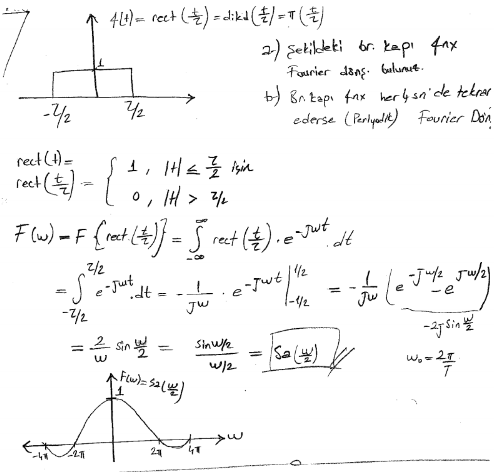 7
f(t) = rect(t/τ) = dikd(t/τ) = π(t/τ)
1
-τ/2 τ/2
a-) Şekildeki br. kapı fnx
Fourier dönş. bulunuz.
b-) Br. kapı fnx her 4 sn'de tekrar
ederse (Periyodik) Fourier Dön
rect(t) =
rect(t/τ) = { 1, |t| ≤ τ/2 için
0, |t| > τ/2
F(w) = F{rect(t/τ)} = ∫_{-∞}^{∞} rect(t/τ) . e^{-jwt} . dt
= ∫_{-τ/2}^{τ/2} e^{-jwt} . dt = -1/jw . e^{-jwt} |_{-1/2}^{1/2} = -1/jw (e^{-jw/2} - e^{jw/2})
-2j sin w/2
= 2/w sin w/2 = sin w/2 / w/2 = Sa(w/2)
w₀ = 2π/T
F(w) = Sa(w/2)
1
-4π -2π 2π 4π w